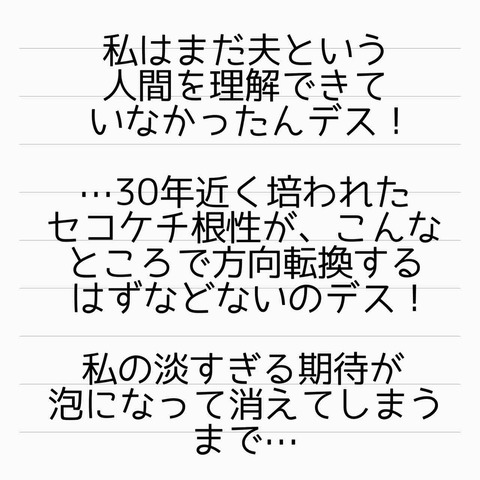 私はまだ夫という
人間を理解できて
いなかったんデス！
…30年近く培われた
セコケチ根性が、こんな
ところで方向転換する
はずなどないのデス！
私の淡すぎる期待が
泡になって消えてしまう
まで…